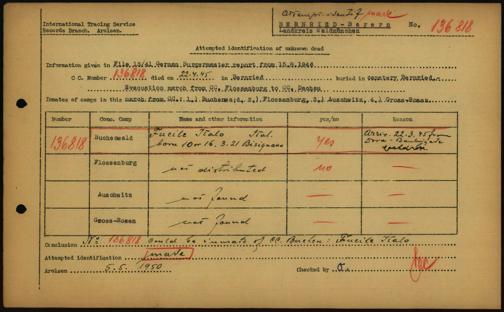 International Tracing Service
Records Branch. Arolsen.
Attempt. identif. made
BERNRIED-Bayern
Landkreis Waldmünchen
No. 136818
Attempted identification of unknown dead
Information given in File 13/41 German Burgermaster report from 15.6.1946
C.C. Number 136818 died on 22.4.45 in Bernried buried in cemetery Bernried
Evacuation march from CC. Flossenburg to CC. Dachau
Inmates of camps in this march from CC.: 1.) Buchenwald, 2.) Flossenburg, 3.) Auschwitz, 4.) Gross-Rosen.
Number Conc. Camp Name and other information yes/no reasons
136818 Buchenwald Fucile Italo Ital. born 10 or 16.3.21 Bisignano yes Arriv. 22.3.45 from
Flossenburg not distributed no
Auschwitz not found —
Gross-Rosen not found —
Conclusion No 136818 could be inmate of CC. Buchen: Fucile Italo
Attempted identification made
Arolsen 5.5. 1950 Checked by